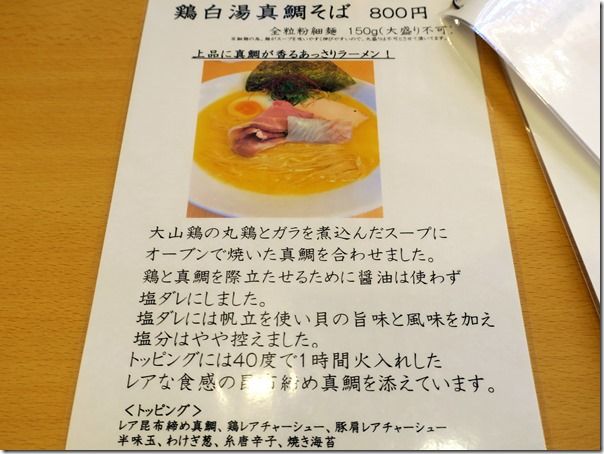 鶏白湯真鯛そば 800円
全粒粉細麺 150g(大盛り不可)
上品に真鯛が香るあっさりラーメン！
大山鶏の丸鶏とガラを煮込んだスープに
オーブンで焼いた真鯛を合わせました。
鶏と真鯛を際立たせるために醤油は使わず
塩ダレにしました。
塩ダレには帆立を使い貝の旨味と風味を加え
塩分はやや控えました。
トッピングには40度で1時間火入れした
レアな食感の昆布締め真鯛を添えています。
＜トッピング＞
レア昆布締め真鯛、鶏レアチャーシュー、豚肩レアチャーシュー
半味玉、わけぎ葱、糸唐辛子、焼き海苔